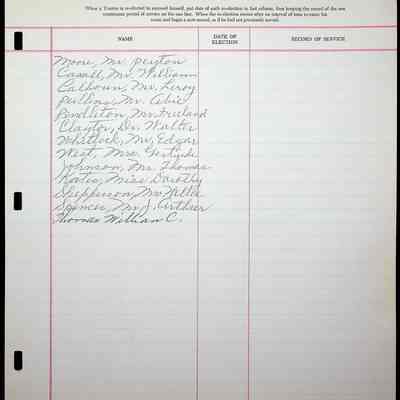 When a Trustee is re-elected to succeed himself, put date of such re-election in first column, thus keeping the record of the one
continuous period of service on the one line. When the re-election occurs after an interval of time re-enter his
name and begin a new record, as if he had not previously served.
NAME
DATE OF
ELECTION
RECORD OF SERVICE
Moore, Mr. Peyton
Casall, Mr. William
Calhoun, Mr. Leroy
Pullins, Mr.
Pendleton, Mr. Freeland
Claytor, Dr. Walter
Whitlock, Mr. Edgar
West, Mrs. Gertrude
Johnson, Mr. Thomas
Kates, Miss Dorothy
Shepperson, Mr. Willie
Spencer, Mr. J. Arthur
Thomas William C.